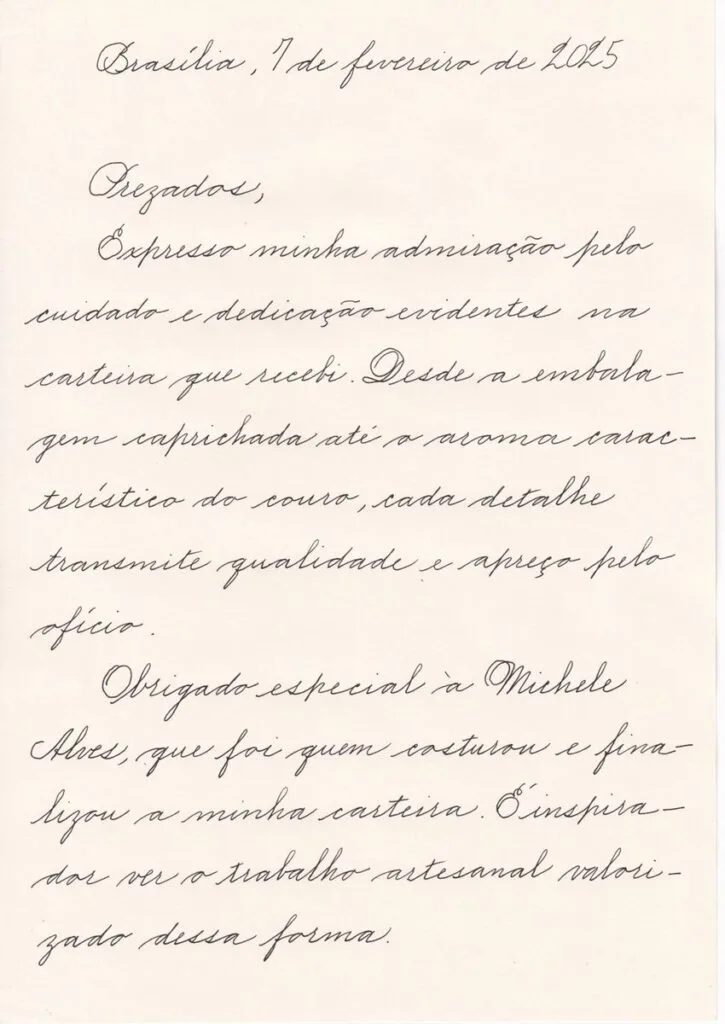 Brasília, 7 de fevereiro de 2025
Prezados,
Expresso minha admiração pelo
cuidado e dedicação evidentes na
carteira que recebi. Desde a embala-
gem caprichada até o aroma carac-
terístico do couro, cada detalhe
transmite qualidade e apreço pelo
ofício.
Obrigado especial à Michele
Alves, que foi quem costurou e fina-
lizou a minha carteira. É inspira-
dor ver o trabalho artesanal valori-
zado dessa forma.